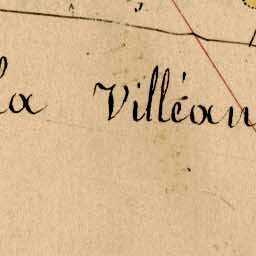 la Villéan